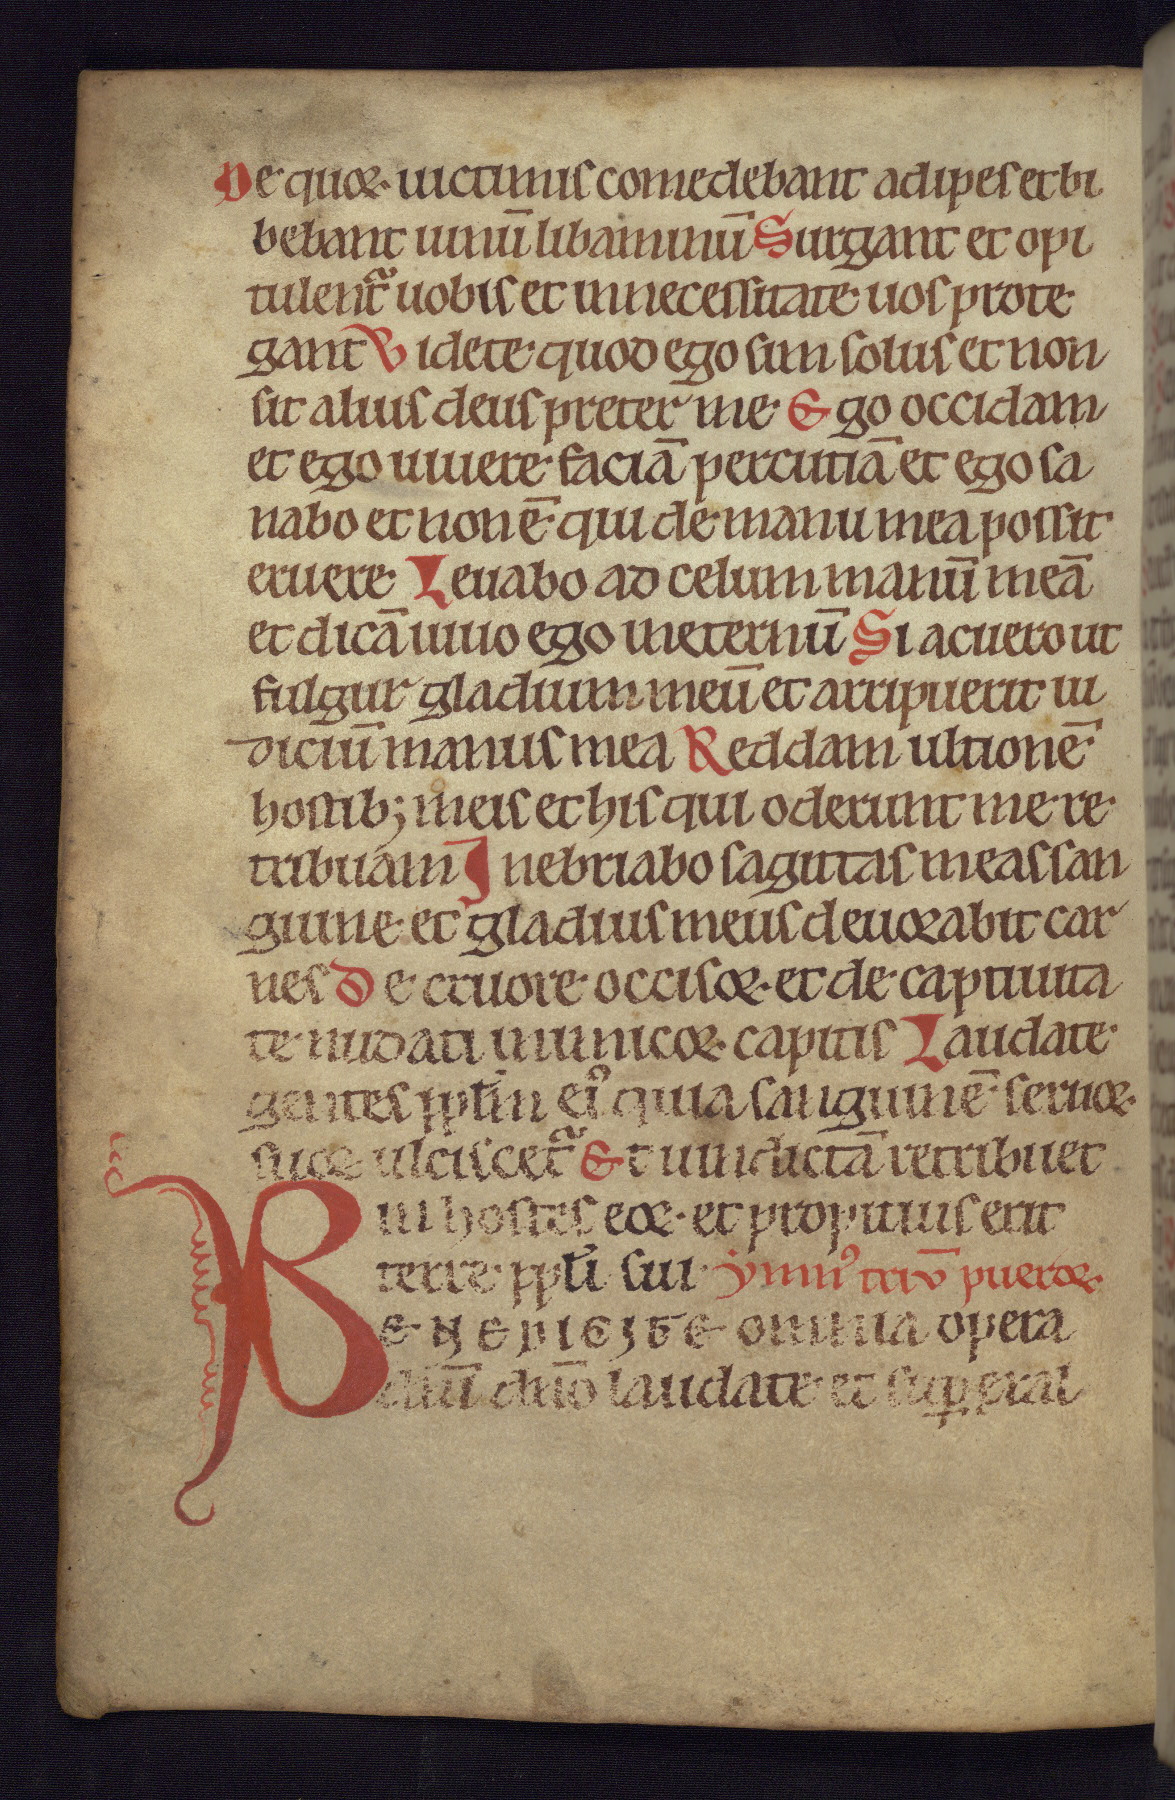 De quoꝝ uictimis comedebant adipes et bi
bebant uinū libaminū Surgant et opi
tulent᷑ uobis et in necessitate uos prote
gant Videte quod ego sim solus et non
sit alius deus preter me Ego occidam
et ego uiuere faciā percutiā et ego sa
nabo et non ē qui de manu mea possit
eruere Leuabo ad celum manū meā
et dicā uiuo ego in eternū Si acuero ut
fulgur gladium meū et arripuerit iu
diciū manus mea Reddam ultionē
hostib; meis et his qui oderunt me re
tribuam Inebriabo sagittas meas san
guine et gladius meus deuorabit car
nes De cruore occisoꝝ et de captiuita
te nudati inimicoꝝ capitis Laudate
gentes ppl̄m ei᷒ quia sanguinē seruoꝝ
suoꝝ ulciscet᷑ Et uindictā retribuet
in hostes eoꝝ et propitius erit
terre ppl̄i sui ymn᷒ triū pueroꝝ
BENEDICITE omnia opera
dn̄i dn̄o laudate et suꝑeral